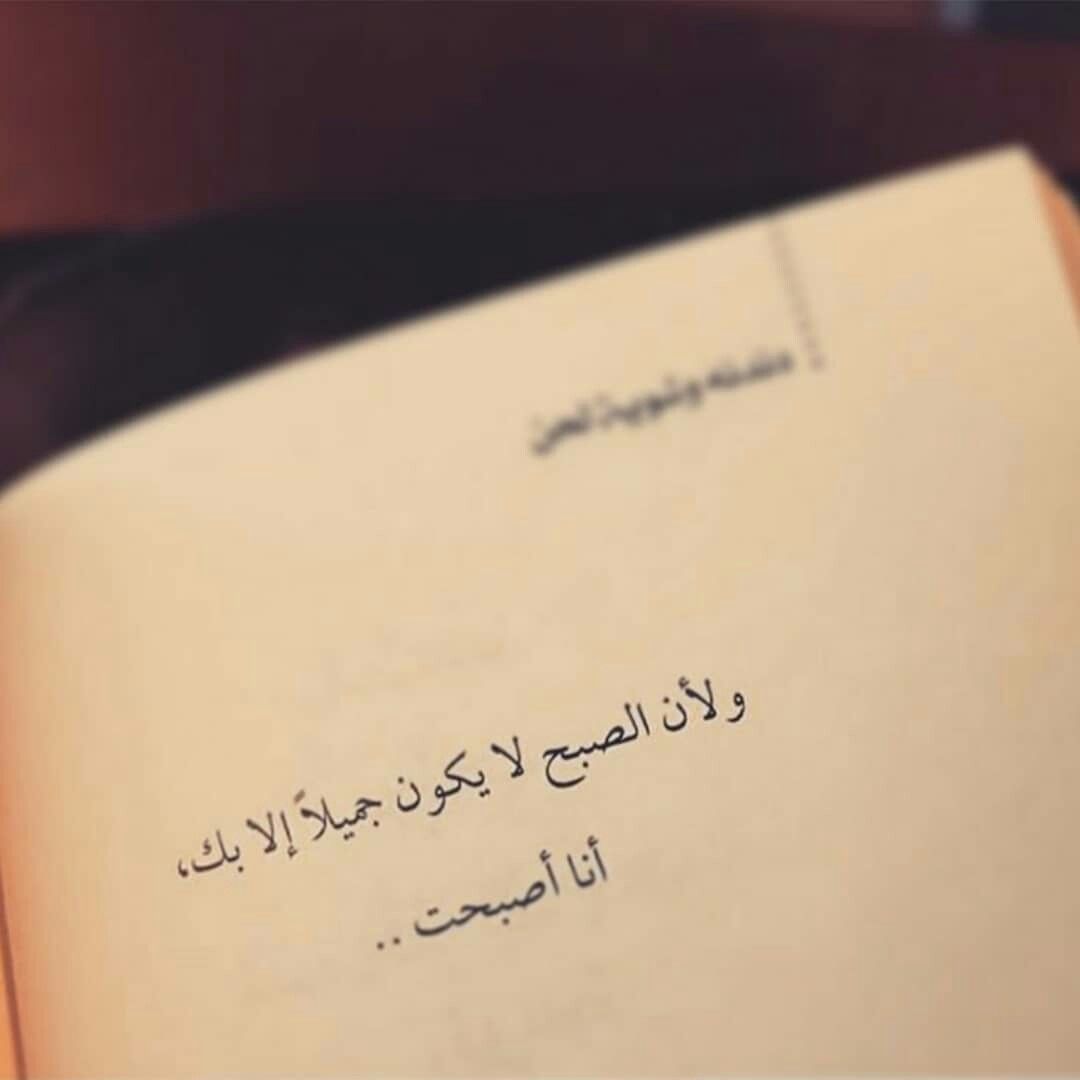 ولأن الصبح لا يكون جميلاً إلا بك،
أنا أصبحت ..